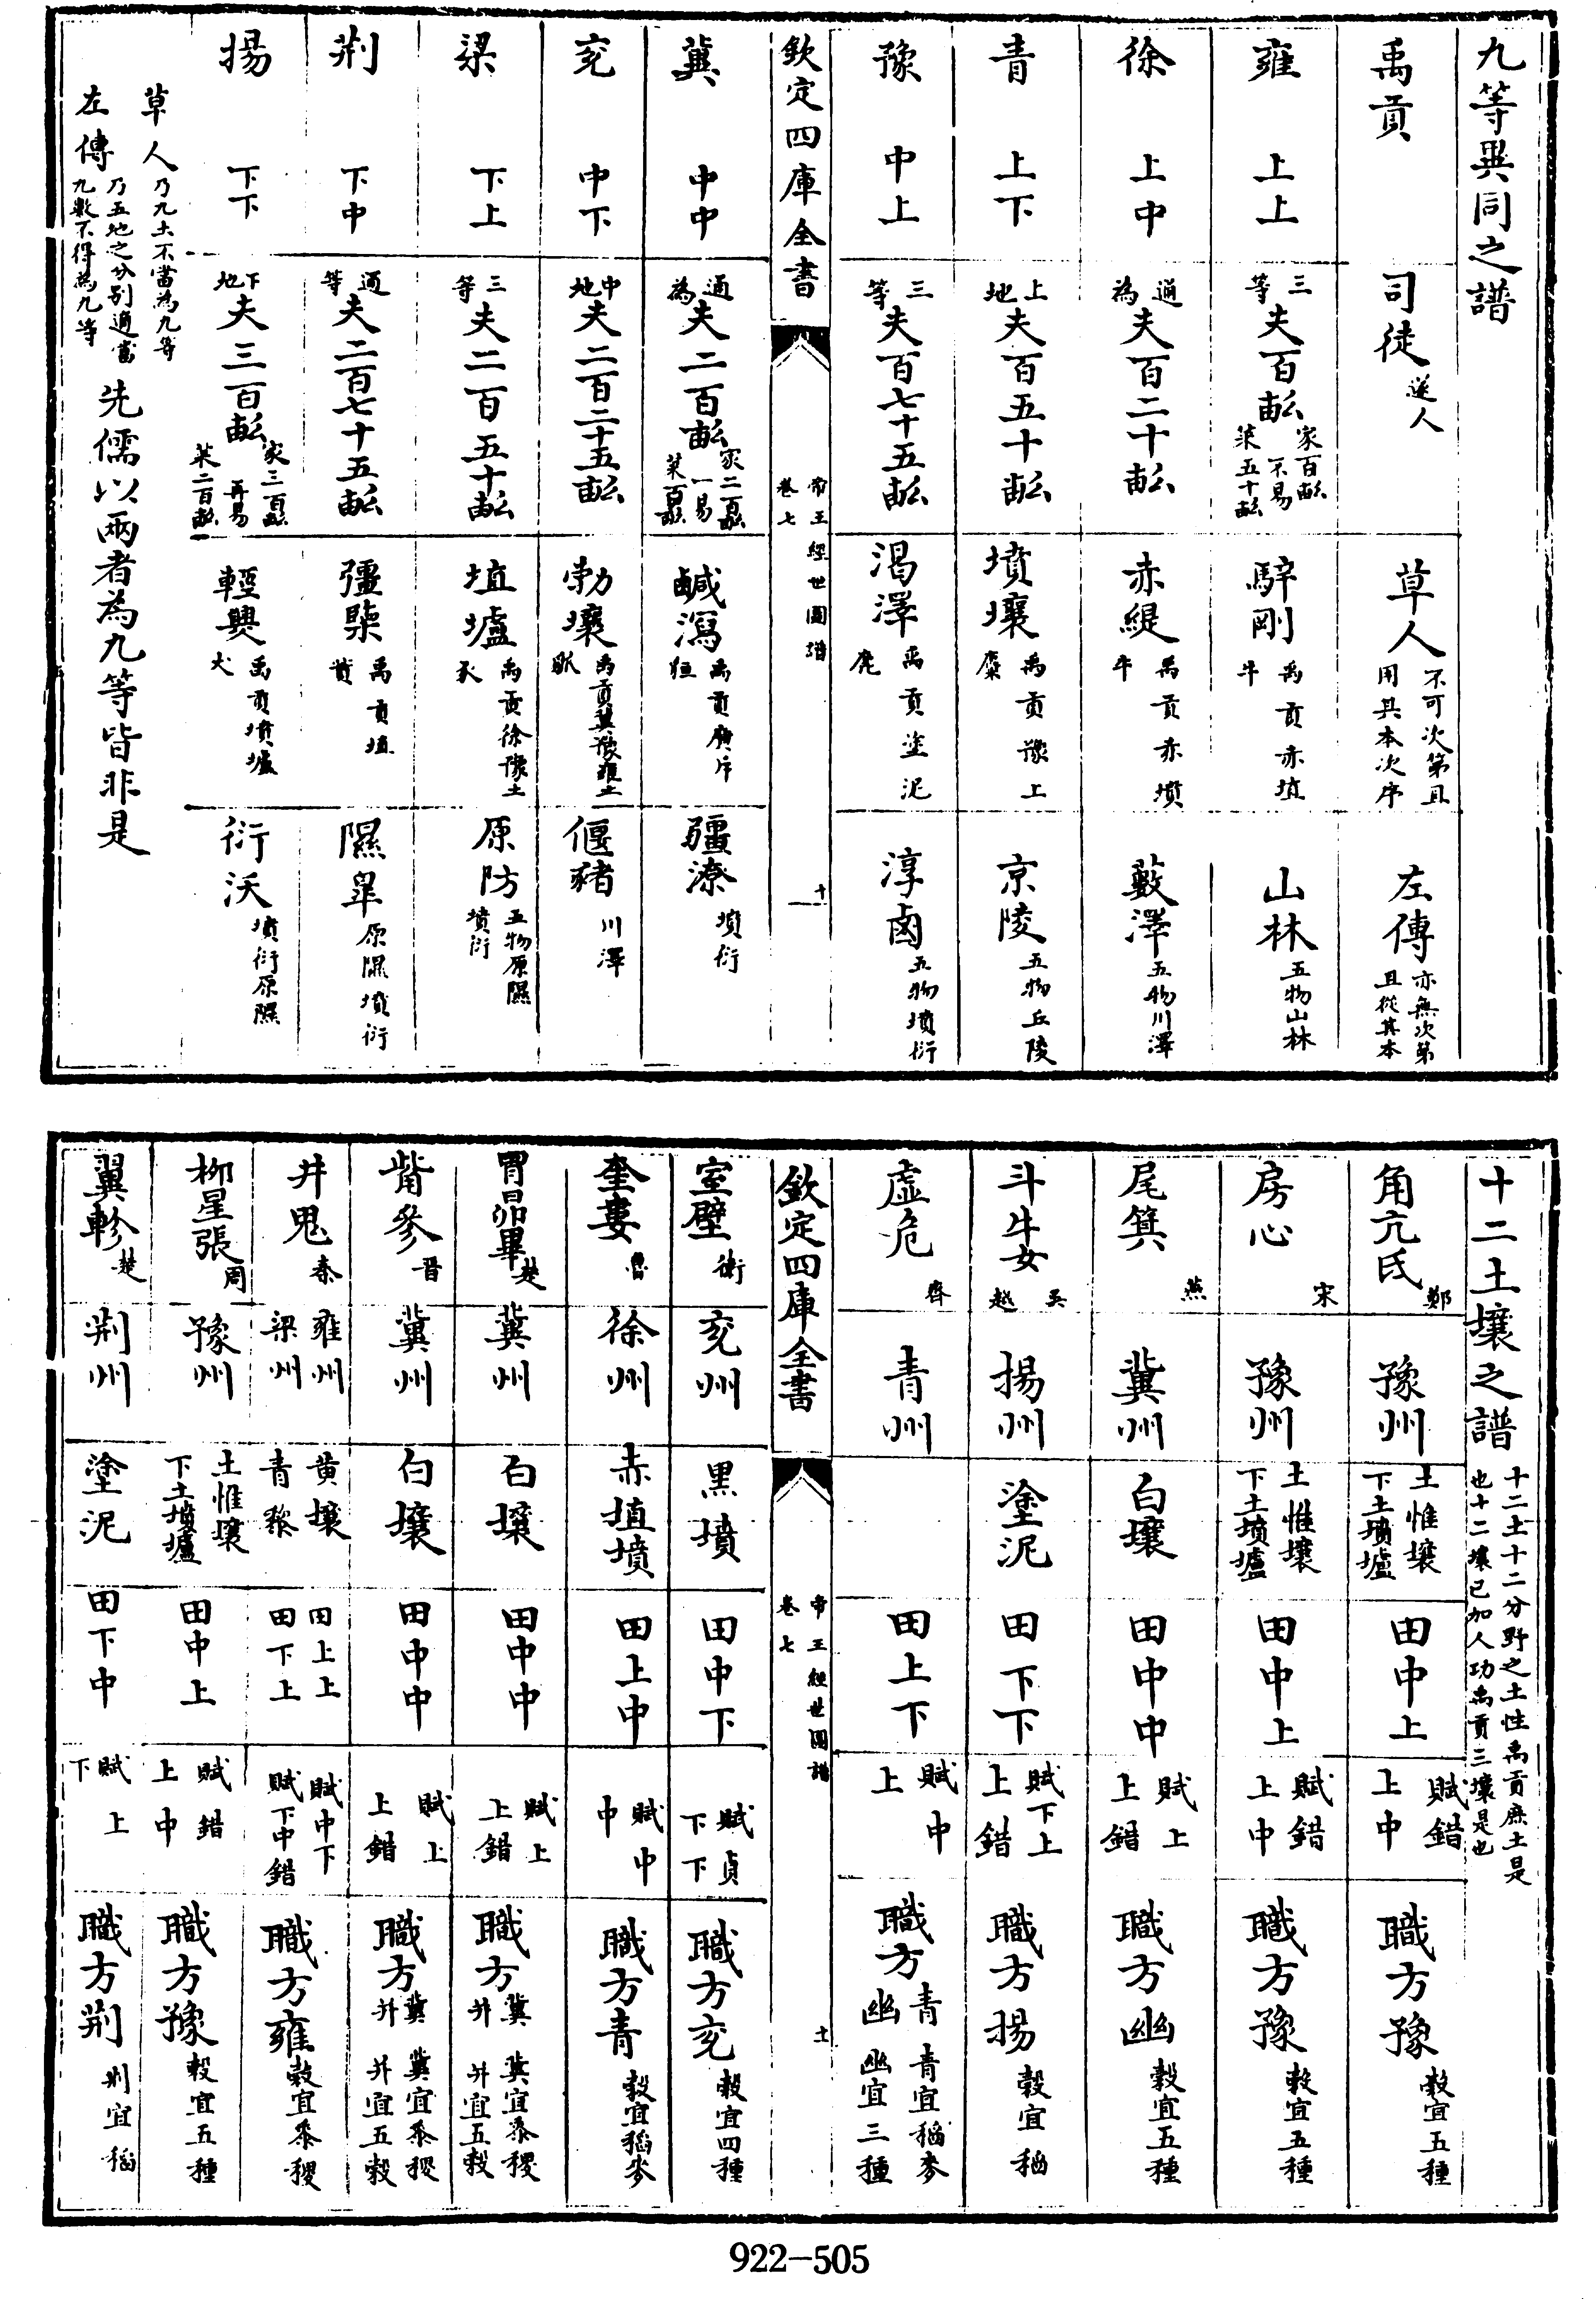 九等異同之譜
禹貢 司徒遂人 草人不可次第且用其本次序 左傳亦無次第且從其本
雍 上上 三等夫百畝家百畝不易萊五十畝 騂剛禹貢赤埴牛 山林五物山林
徐 上中 通為夫百二十畝 赤緹禹貢赤墳牛 藪澤五物川澤
青 上下 上地夫百五十畝 墳壤禹貢豫上麋 京陵五物丘陵
豫 中上 三等夫百七十五畝 渴澤禹貢塗泥鹿 淳鹵五物墳衍
欽定四庫全書 帝王經世圖譜卷七 十
冀 中中 通為夫二百畝家二百畝一易萊百畝 鹹瀉禹貢廣斥狟 疆潦墳衍
兖 中下 中地夫二百二十五畝 勃壤禹貢冀豫雍土 偃豬川澤
梁 下上 三等夫二百五十畝 埴壚禹貢徐豫土豕 原防五物原隰墳衍
荆 下中 通等夫二百七十五畝 彊㯺禹貢埴蕡 隰臯原隰墳衍
揚 下下 下地夫三百畝家三百畝再易萊二百畝 輕㷼禹貢墳壚犬 衍沃墳衍原隰
草人乃九土不當為九等
左傳乃五地之分别適當九數不得為九等
先儒以兩者為九等皆非是
十二土壤之譜十二土十二分野之土性禹貢庶土是也十二壤已加人功禹貢三壤是也
角亢氐鄭 豫州 土惟壤下土墳壚 田中上 賦錯上中 職方豫穀宜五種
房心宋 豫州 土惟壤下土墳壚 田中上 賦錯上中 職方豫穀宜五種
尾箕燕 冀州 白壤 田中中 賦上上錯 職方幽穀宜五種
斗牛女吳越 揚州 塗泥 田下下 賦下上上錯 職方揚穀宜稻
虚危齊 青州 田上下 賦中上 職方青幽青宜稻麥幽宜三種
欽定四庫全書 帝王經世圖譜卷七 十一
室壁衛 兖州 黑墳 田中下 賦貞下下 職方兖穀宜四種
奎婁魯 徐州 赤埴墳 田上中 賦中中 職方青穀宜稻麥
胃昴畢楚 冀州 白壤 田中中 賦上上錯 職方冀并冀宜黍稷并宜五穀
觜參晉 冀州 白壤 田中中 賦上上錯 職方冀并冀宜黍稷并宜五穀
井鬼秦 雍州梁州 黄壤青黎 田上上田下上 賦中下賦下中錯 職方雍穀宜黍稷
栁星張周 豫州 土惟壤下土墳壚 田中上 賦錯上中 職方豫穀宜五種
翼軫楚 荆州 塗泥 田下中 賦上下 職方荆荆宜稻
922-505